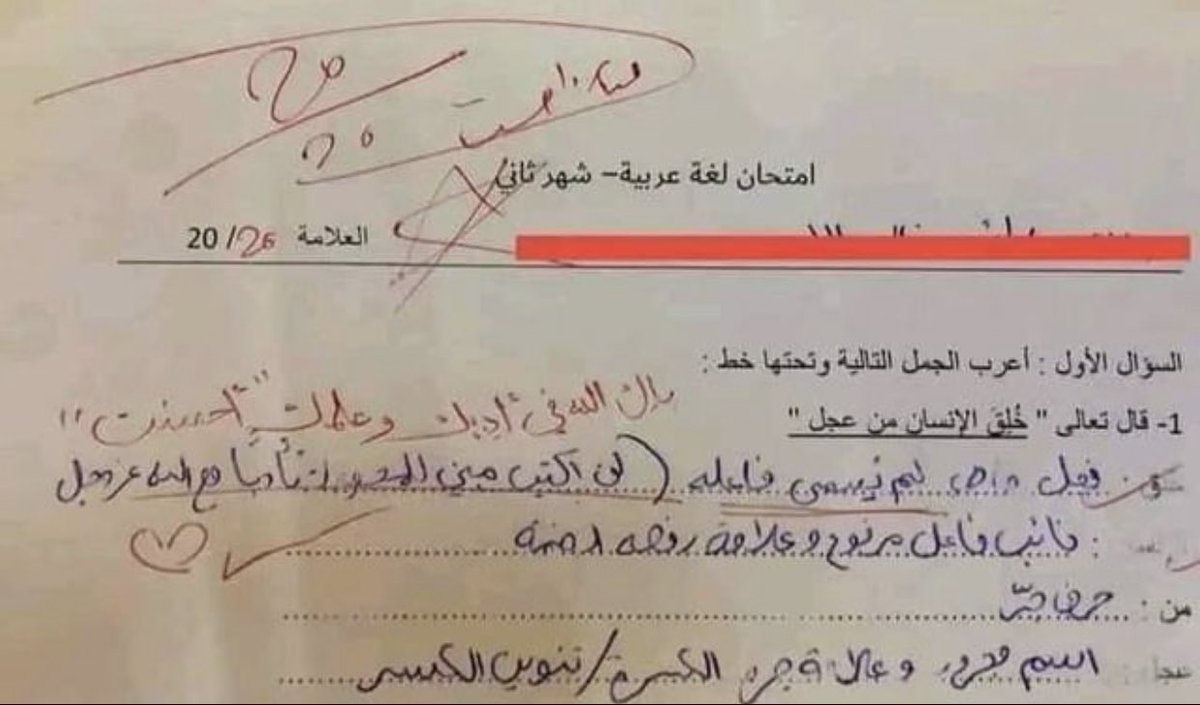 20
20
امتحان لغة عربية– شهر ثاني
العلامة 20/20
السؤال الأول : أعرب الجمل التالية وتحتها خط :
بارك الله في أدبك وعلمك "أحسنت"
1- قال تعالى " خُلِقَ الإنسان من عجل "
فعل ماض لم يسمى فاعله (لن اكتب مبني للمجهول تأدبا مع الله عز وجل
: نائب فاعل مرفوع وعلامة رفعه الضمة
من : حرف جرّ
عجل اسم مجرور وعلامة جره الكسرة/تنوين الكسر